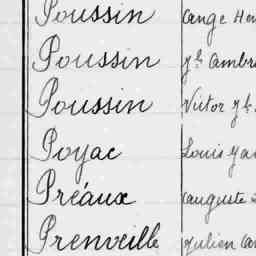 Poussin Ange
Poussin
Poussin Victor
Poyac Louis
Préaux Auguste
Prenveille Julien